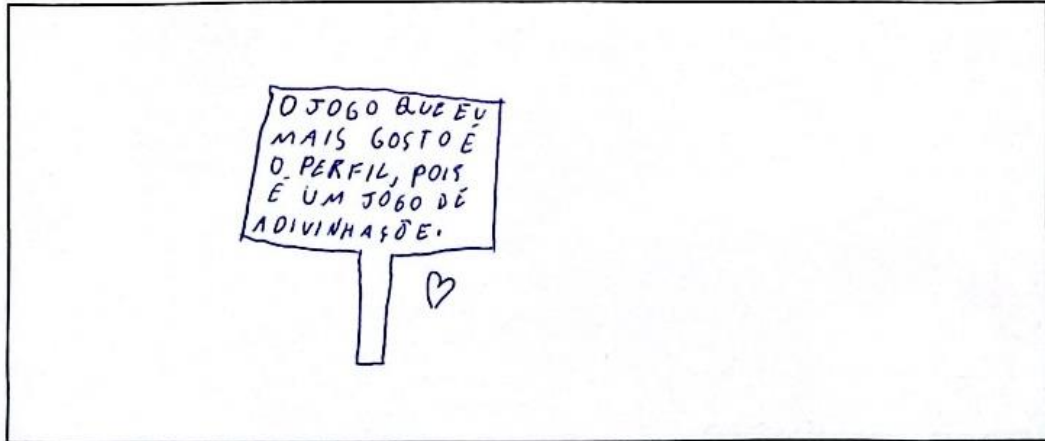 O JOGO QUE EU
MAIS GOSTO É
O PERFIL, POIS
É UM JOGO DE
ADIVINHAÇÕE.